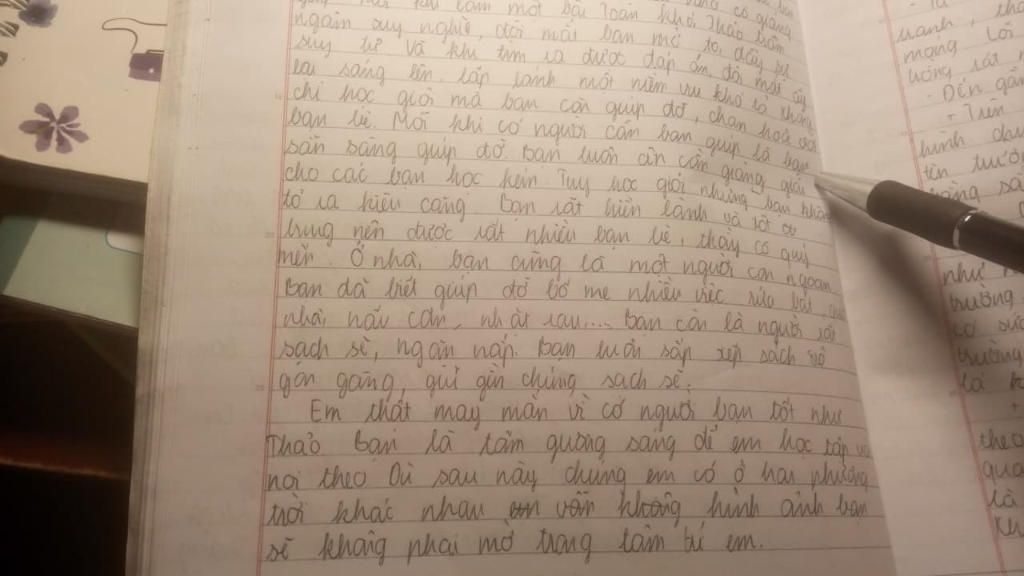 làm một bài toán khó, Thảo trầm
ngâm suy nghĩ, đôi mắt bạn mở to, đầy sự
suy tư và khi tìm ra được đáp án, đôi mắt ấy
lại sáng lên, lấp lánh một niềm vui khó tả. Không
chỉ học giỏi mà bạn còn giúp đỡ, chan hoà với
bạn bè. Mỗi khi có người cần bạn giúp là bạn
sẵn sàng giúp đỡ. Bạn luôn ân cần giảng giải
cho các bạn học kém. Tuy học giỏi nhưng bạn không
tỏ ra kiêu căng. Bạn rất hiền lành và tốt
bụng nên được rất nhiều bạn bè, thầy cô quý
mến. Ở nhà, bạn cũng là một người con ngoan.
Bạn đã biết giúp đỡ bố mẹ nhiều việc rửa bát,
nhà, nấu cơm, nhặt rau,... Bạn còn là người rất
sạch sẽ, ngăn nắp. Bạn luôn sắp xếp sách vở
gọn gàng, giữ gìn chúng sạch sẽ.
Em thật may mắn vì có người bạn tốt như
Thảo. Bạn là tấm gương sáng để em học tập và
noi theo. Dù sau này chúng em có ở hai phương
trời khác nhau vẫn không hình ảnh bạn
sẽ không phai mờ trong tâm trí em.
- Đến gần
+ Trên
hình
như
trường
trường
theo
là